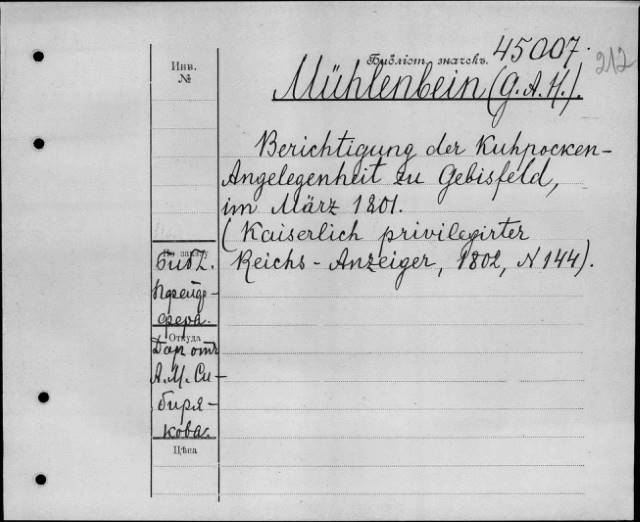 Библіот. значекъ. 45007.
212
Инв.
№
Mühlenbein (G. A. H.).
Berichtigung der Kuhpocken-
Angelegenheit zu Gebisfeld,
im März 1801.
(Kaiserlich privilegirter
Reichs-Anzeiger, 1802, N 144).
Библ.
Пфейф-
фера.
Откуда
Даръ отъ
А. М. Си-
биря-
кова.
Цѣна